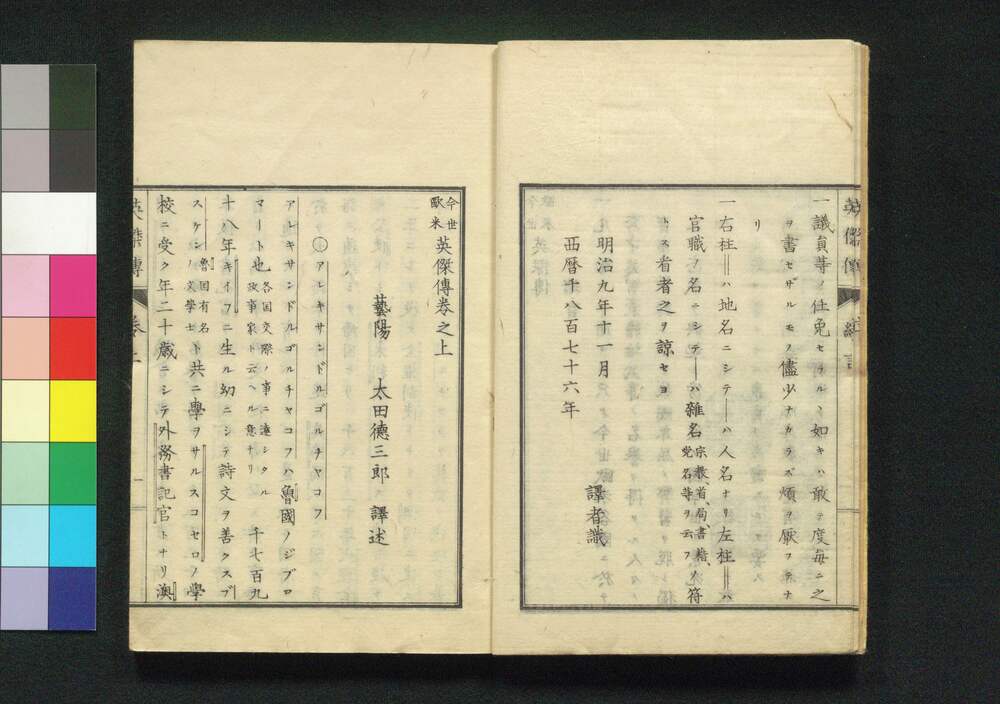 一議員等ノ任免セラルヽ如キハ敢テ度毎ニ之
ヲ書セザルモノ儘少ナカラズ煩ヲ厭フテナ
リ
一右柱‖ハ地名ニシテ│ハ人名ナリ左柱‖ハ
官職ノ名ニシテ│ハ雑名宗教、省、局、書籍、党名等ヲ云フノ符
トス看者之ヲ諒セヨ
明治九年十一月
西暦千八百七十六年
譯者識
今世歐米英傑傳巻之上
藝陽 太田德三郎 譯述
○アレキサンドルゴルチヤコフ
アレキサンドルゴルチヤコフハ魯國ノジプロ
マート也各国交際ノ事ニ達シタル政事家ト云ヘル意ナリ千七百九
十八年キイフニ生ル幼ニシテ詩文ヲ善クスプ
スケン魯国有名ノ文学士ト共ニ學ヲサルスコセロノ學
校ニ受ク年二十歳ニシテ外務書記官トナリ澳